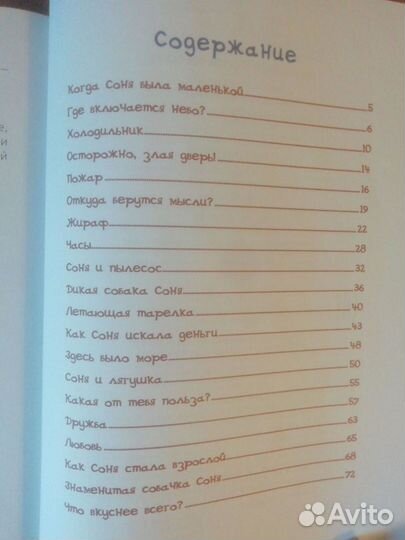 Содержание
Когда Соня была маленькой 5
Где включается небо? 6
Холодильник 10
Осторожно, злая дверь! 14
Пожар 16
Откуда берутся мысли? 19
Жираф 22
Часы 28
Соня и пылесос 32
Дикая собака Соня 36
Летающая тарелка 40
Как Соня искала деньги 43
Здесь было море 48
Соня и лягушка 50
Какая от тебя польза? 55
Дружба 57
Любовь 63
Как Соня стала взрослой 65
Знаменитая собачка Соня 68
Что вкуснее всего? 72
Avito